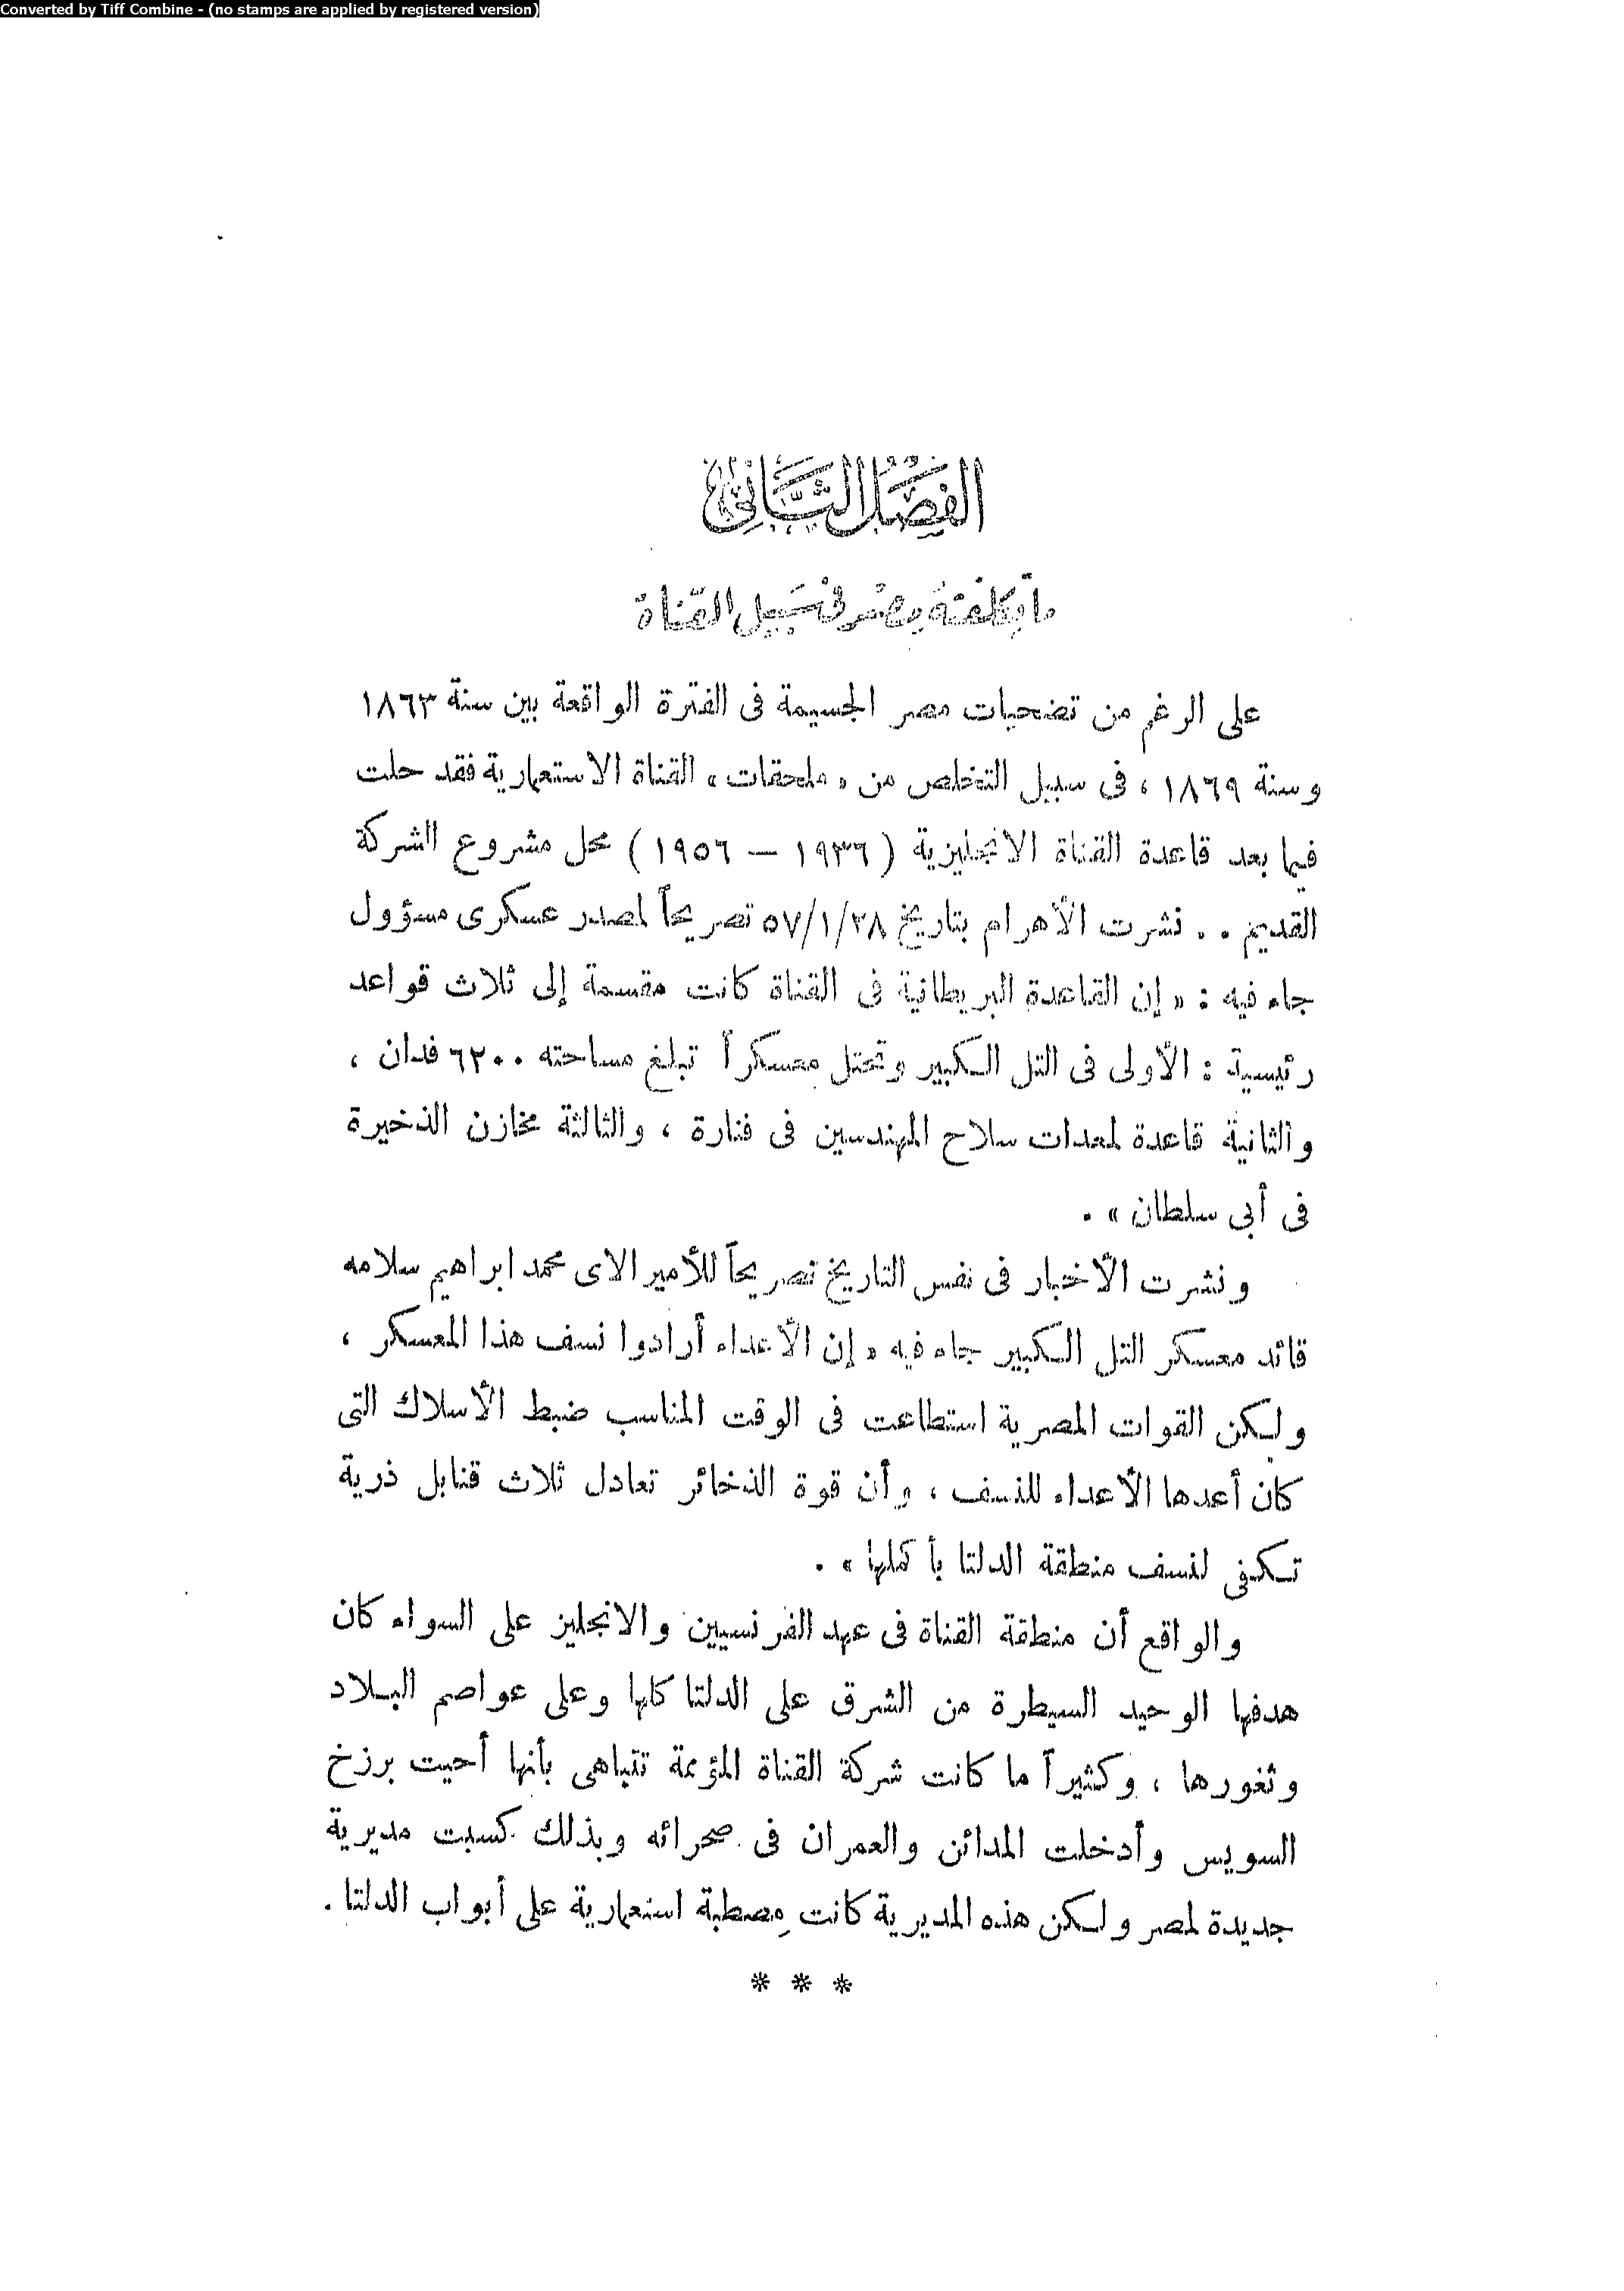 Converted by Tiff Combine - (no stamps are applied by registered version)
الفصل الثاني
ما تكلفته مصر في سبيل القناة
على الرغم من تضحيات مصر الجسيمة فى الفترة الواقعة بين سنة ١٨٦٣
وسنة ١٨٦٩ ، فى سبيل التخلص من « ملحقات » القناة الاستعمارية فقد حلت
فيما بعد قاعدة القناة الانجليزية ( ١٩٣٦ — ١٩٥٦ ) محل مشروع الشركة
القديم . . نشرت الأهرام بتاريخ ٥٧/١/٢٨ تصريحاً لمصدر عسكرى مسؤول
جاء فيه : « إن القاعدة البريطانية فى القناة كانت مقسمة إلى ثلاث قواعد
رئيسية : الأولى فى التل الكبير وتحتل معسكراً تبلغ مساحته ٦٢٠٠ فدان ،
والثانية قاعدة لمعدات سلاح المهندسين فى فنارة ، والثالثة مخازن الذخيرة
فى أبى سلطان » .
ونشرت الأخبار فى نفس التاريخ تصريحاً للأمير الاى محمد ابراهيم سلامه
قائد معسكر التل الكبير جاء فيه « إن الأعداء أرادوا نسف هذا المعسكر ،
ولكن القوات المصرية استطاعت فى الوقت المناسب ضبط الأسلاك التى
كان أعدها الأعداء للنسف ، وأن قوة الذخائر تعادل ثلاث قنابل ذرية
تكفى لنسف منطقة الدلتا بأكملها » .
والواقع أن منطقة القناة فى عهد الفرنسيين والانجليز على السواء كان
هدفها الوحيد السيطرة من الشرق على الدلتا كلها وعلى عواصم البلاد
وثغورها ، وكثيراً ما كانت شركة القناة المؤممة تتباهى بأنها أحيت برزخ
السويس وأدخلت المدائن والعمران فى صحرائه وبذلك كسبت مديرية
جديدة لمصر ولكن هذه المديرية كانت مِصطبة استعمارية على أبواب الدلتا .
* * *